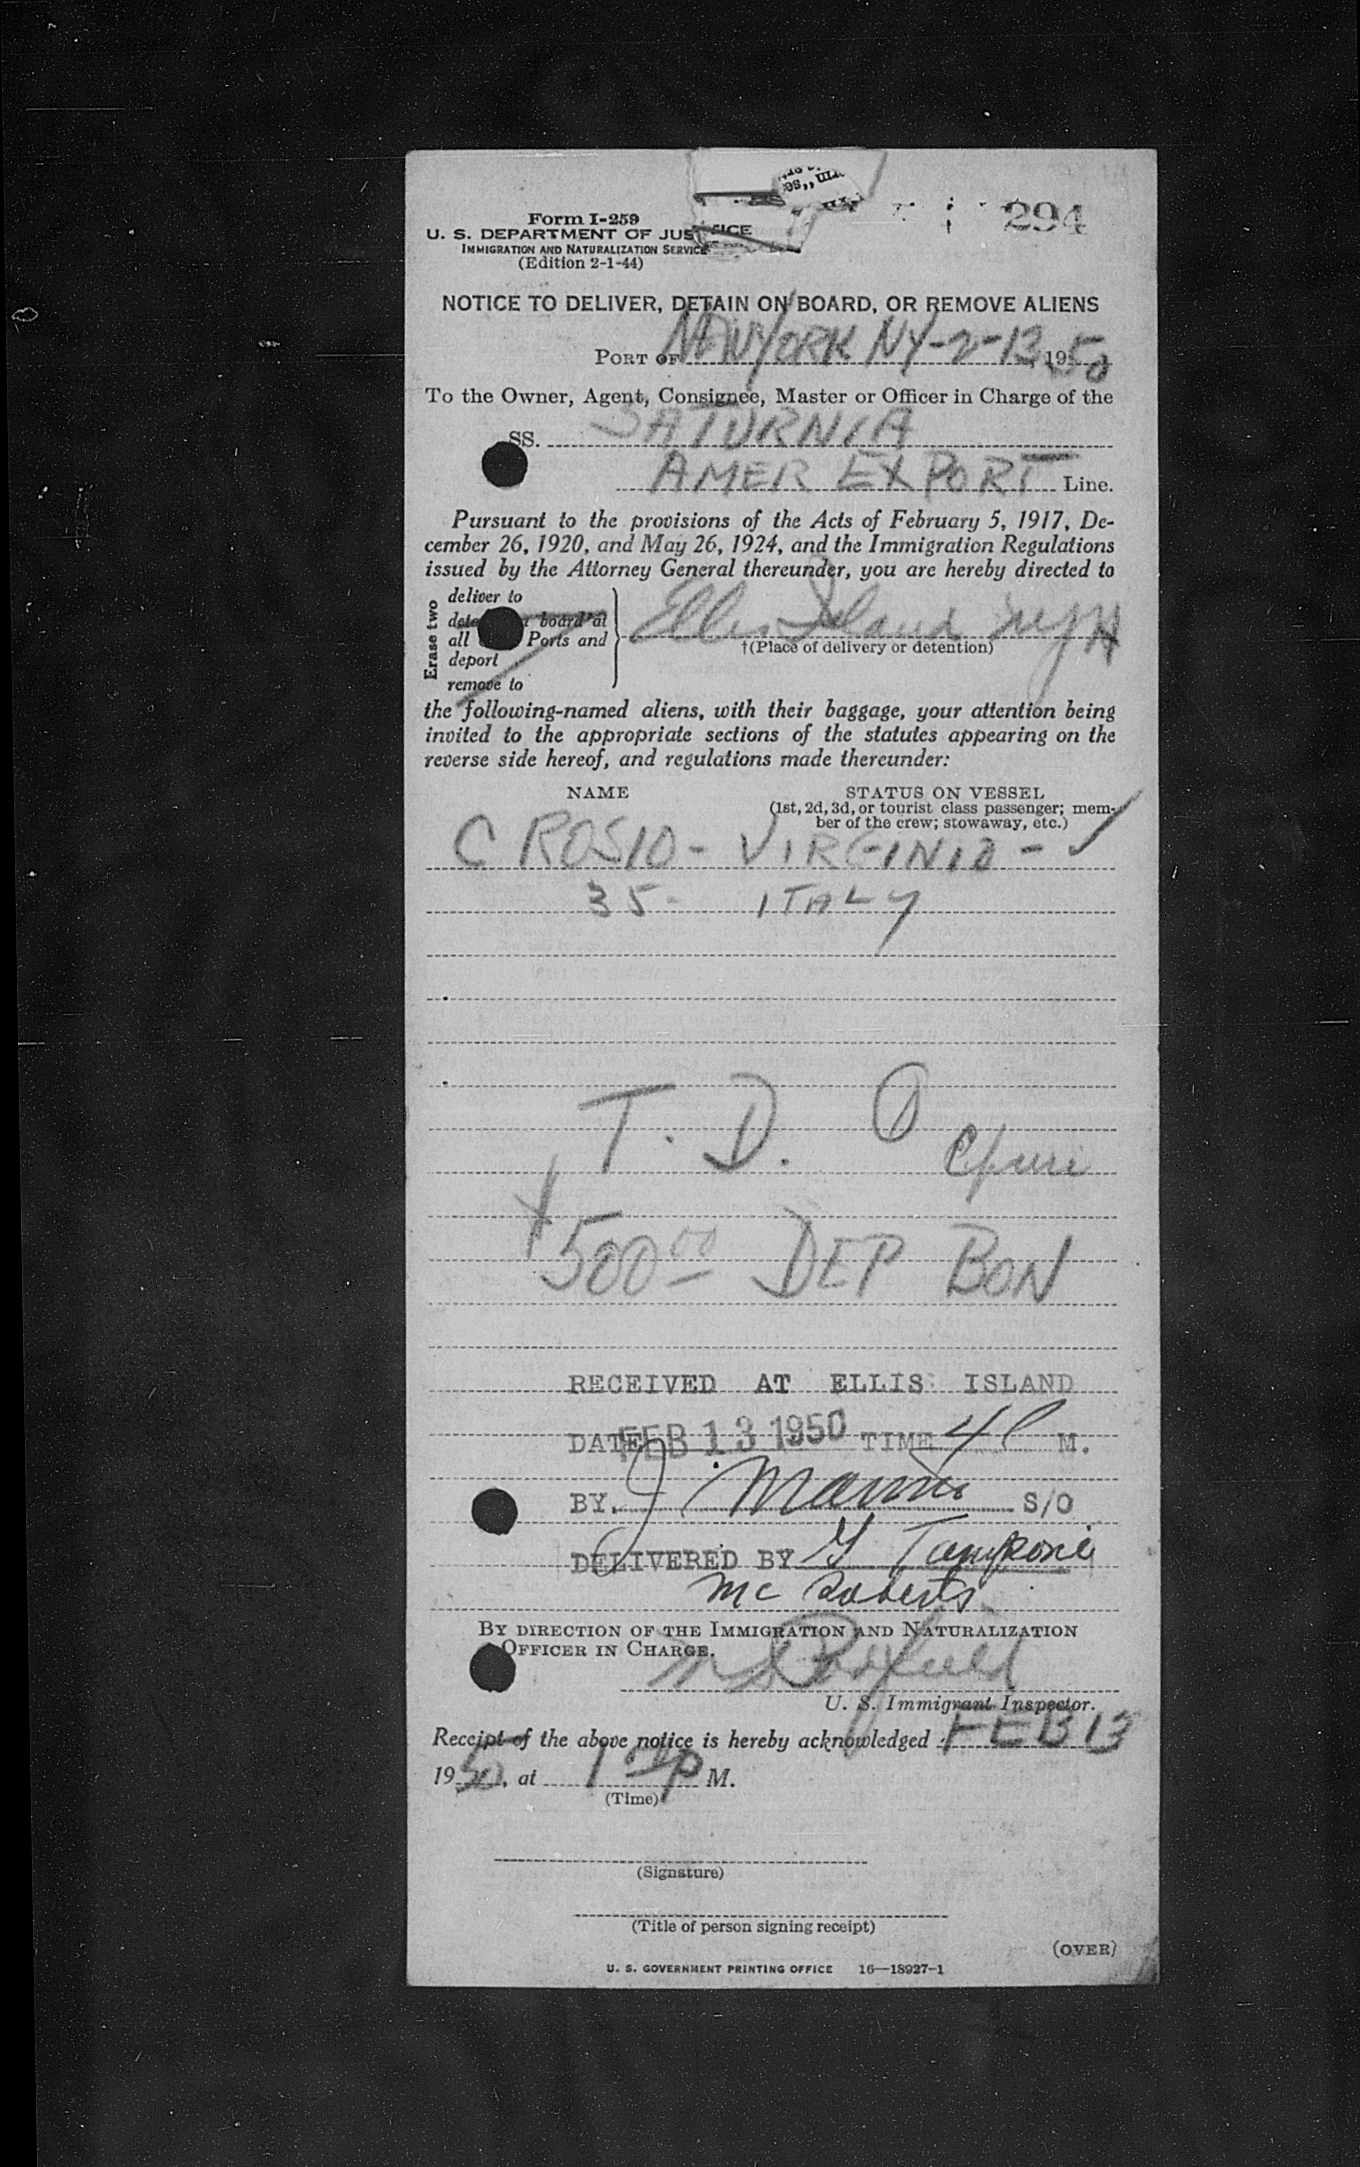 294
Form I-259
U. S. DEPARTMENT OF JUSTICE
IMMIGRATION AND NATURALIZATION SERVICE
(Edition 2-1-44)
NOTICE TO DELIVER, DETAIN ON BOARD, OR REMOVE ALIENS
PORT OF NEW YORK NY-2-13, 1950
To the Owner, Agent, Consignee, Master or Officer in Charge of the
SS. SATURNIA
AMER EXPORT Line.
Pursuant to the provisions of the Acts of February 5, 1917, De-
cember 26, 1920, and May 26, 1924, and the Immigration Regulations
issued by the Attorney General thereunder, you are hereby directed to
Erase two
deliver to
board at
all Ports and
deport
remove to
Ellis Island
†(Place of delivery or detention)
the following-named aliens, with their baggage, your attention being
invited to the appropriate sections of the statutes appearing on the
reverse side hereof, and regulations made thereunder:
NAME STATUS ON VESSEL
(1st, 2d, 3d, or tourist class passenger; mem-
ber of the crew; stowaway, etc.)
CROSIO - VIRGINIO -
35- ITALY
T. D.
500 00 DEP BON
RECEIVED AT ELLIS ISLAND
DATE FEB 13 1950 TIME 4 P M.
BY. J S/O
DELIVERED BY G
Mc Roberts
BY DIRECTION OF THE IMMIGRATION AND NATURALIZATION
OFFICER IN CHARGE.
U. S. Immigrant Inspector.
Receipt of the above notice is hereby acknowledged FEB 13
1950, at 1 P M.
(Time)
(Signature)
(Title of person signing receipt)
(OVER)
U. S. GOVERNMENT PRINTING OFFICE 16—18927-1